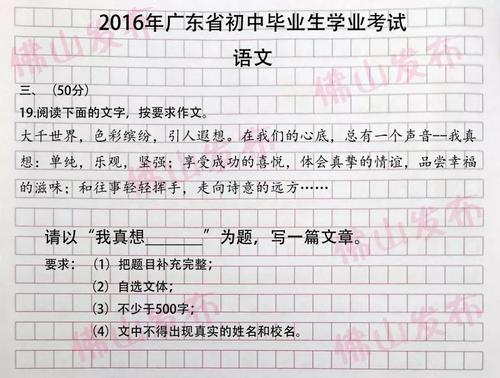 2016年广东省初中毕业生学业考试
语文
三、（50分）
19.阅读下面的文字，按要求作文。
大千世界，色彩缤纷，引人遐想。在我们的心底，总有一个声音--我真
想：单纯，乐观，坚强；享受成功的喜悦，体会真挚的情谊，品尝幸福
的滋味；和往事轻轻挥手，走向诗意的远方……
请以“我真想_______”为题，写一篇文章。
要求：（1）把题目补充完整；
（2）自选文体；
（3）不少于500字；
（4）文中不得出现真实的姓名和校名。
佛山发布
佛山发布
佛山发布
佛山发布
佛山发布